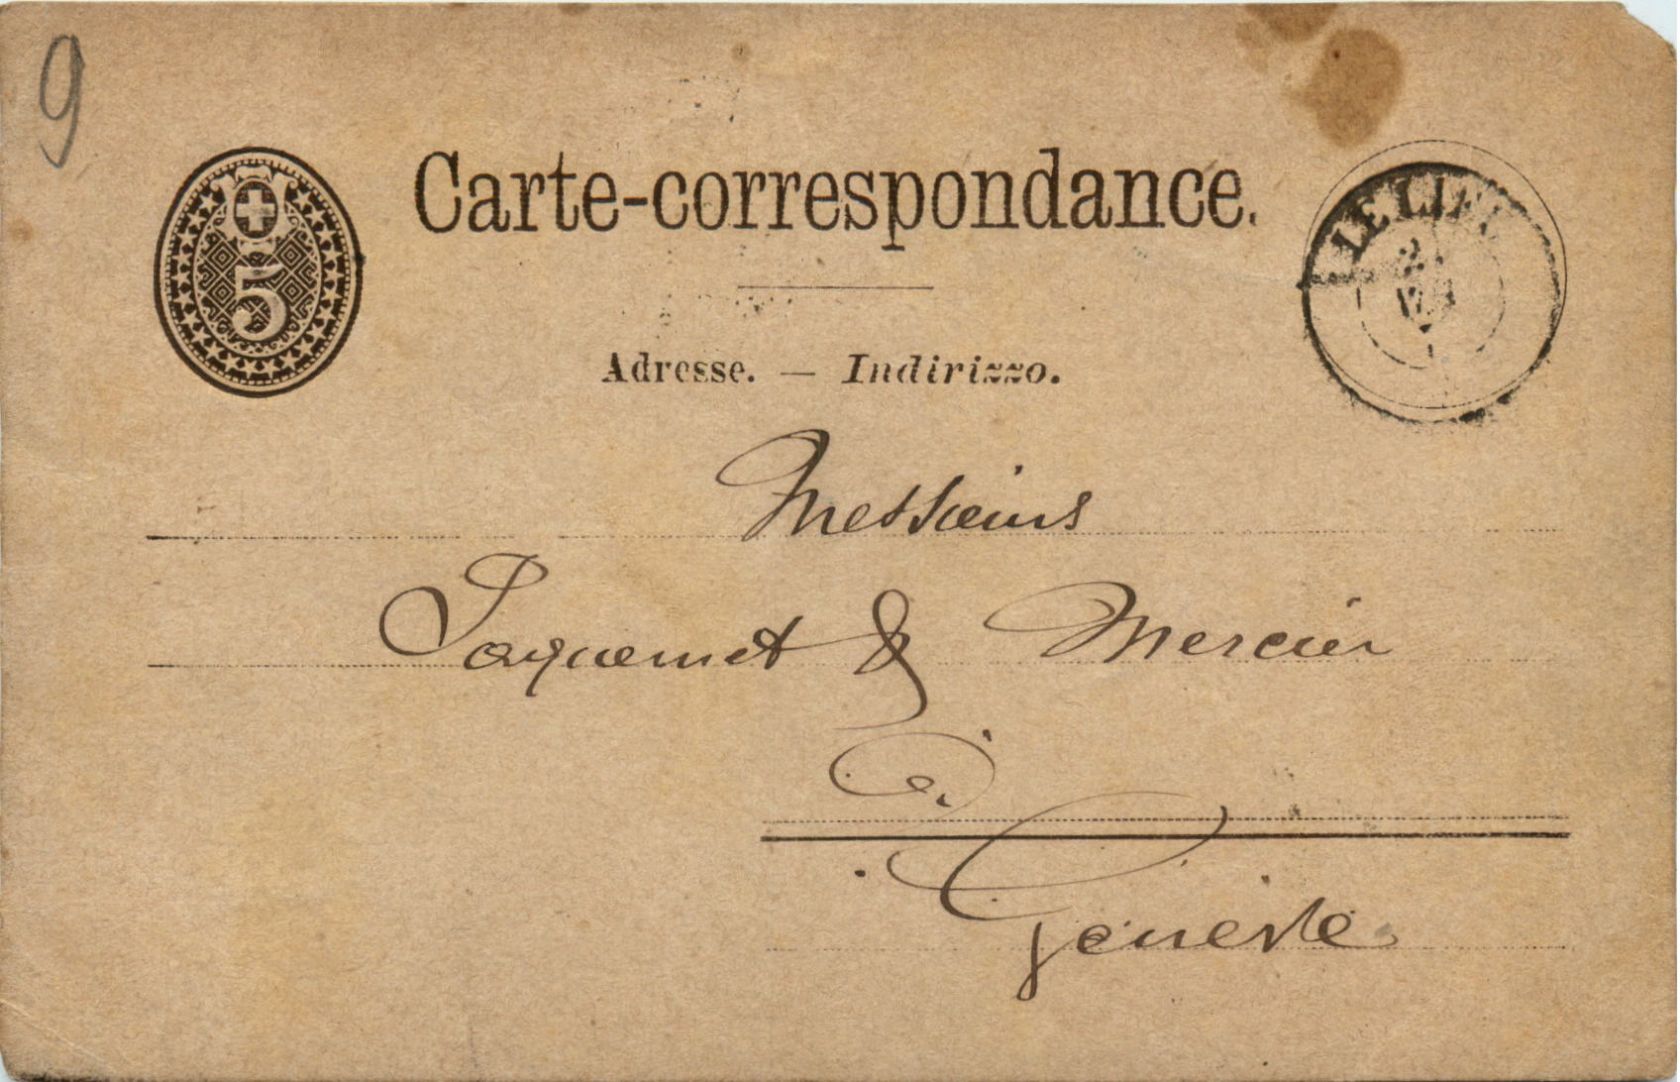 9
Carte-correspondance.
5
Adresse. — Indirizzo.
Messieurs
Jaquemet & Mercier
à
Genève